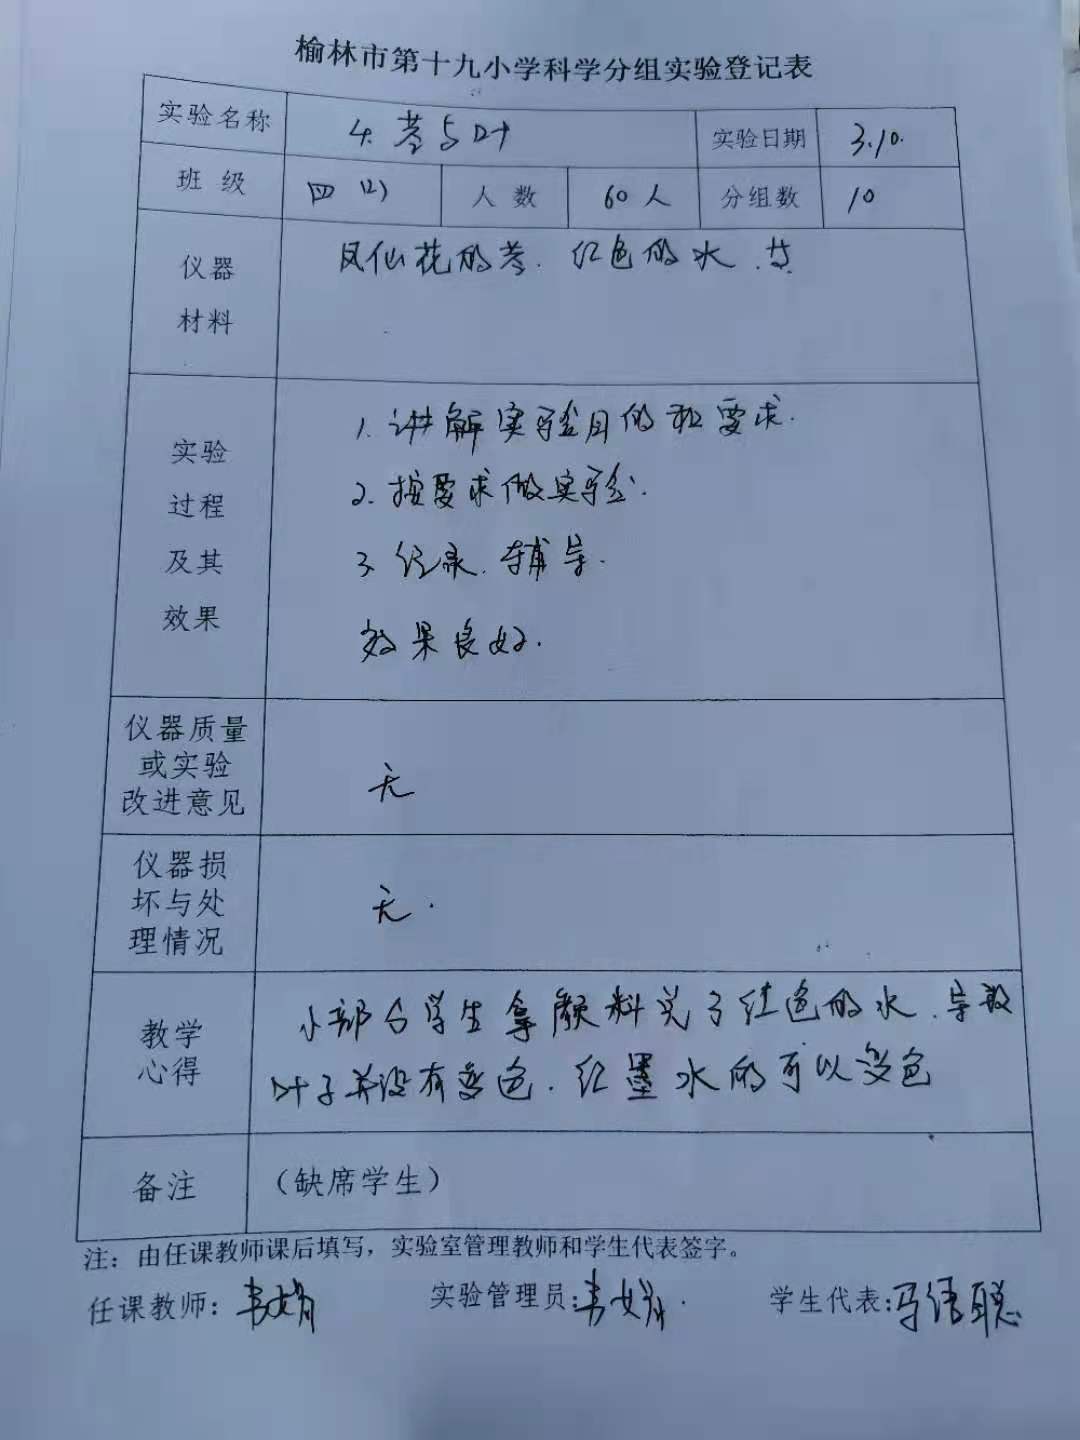 榆林市第十九小学科学分组实验登记表
实验名称 4. 茎与叶 实验日期 3.10.
班级 四(2) 人数 60人 分组数 10
仪器
材料
凤仙花的茎. 红色的水.
实验
过程
及其
效果
1. 讲解实验目的和要求.
2. 按要求做实验.
3. 记录. 辅导.
效果良好.
仪器质量
或实验
改进意见
无
仪器损
坏与处
理情况
无.
教学
心得
小部分学生拿颜料兑了红色的水. 导致
叶子并没有变色. 红墨水的可以变色
备注 (缺席学生)
注：由任课教师课后填写，实验室管理教师和学生代表签字。
任课教师: 韦娟 实验管理员: 韦娟. 学生代表: 马 聪